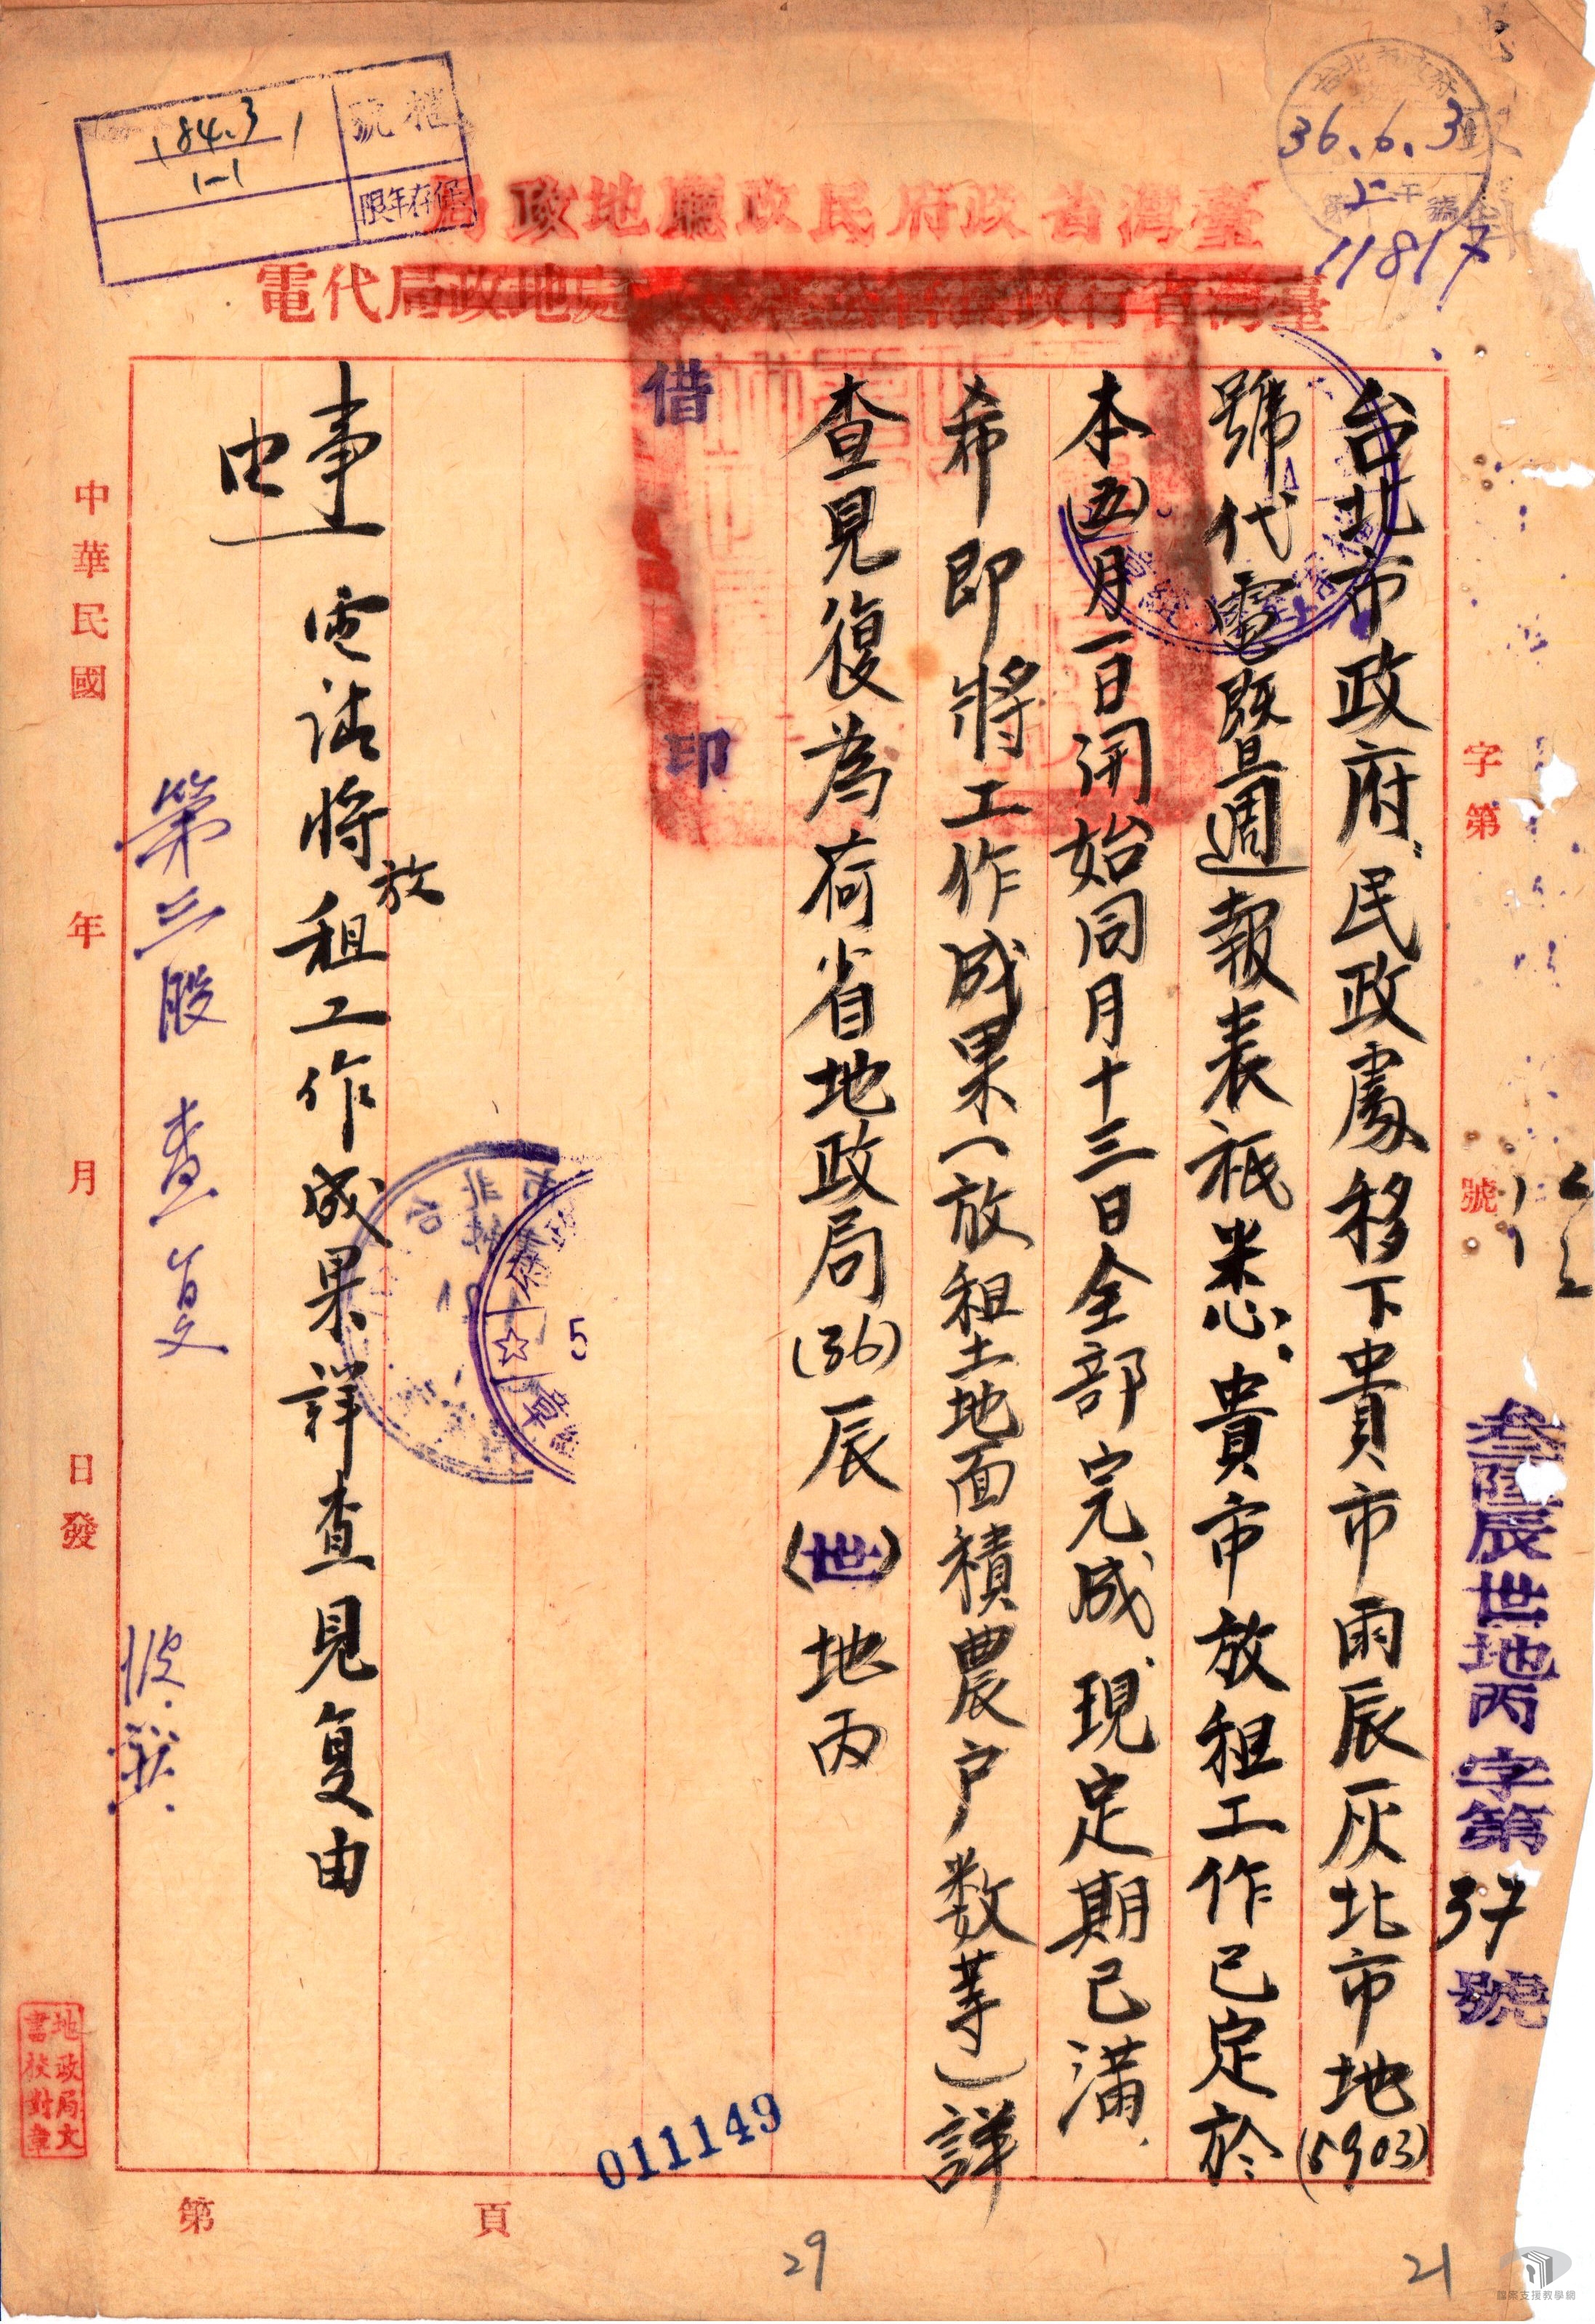 檔號
184.3/1-1
保存年限
台北市政府
36.6.3
上午
11817
臺灣省政府民政廳地政局
處地政局代電
字第號
叁陸辰世地丙字第37號
台北市政府:民政處移下貴市雨辰灰北市地(5903)
號代電既暨週報表祇悉:貴市放租工作已定於
本(五)月一日開始同月十三日全部完成、現定期已滿、
希即將工作成果(放租土地面積農户数等)詳
查見復為荷省地政局(36)辰(世)地丙
借印
事由
電請將放租工作成果詳查見复由
第三股 查复
中華民國 年 月 日發
地政局文書校對章
011149
第 頁
29
21
檔案支援教學網